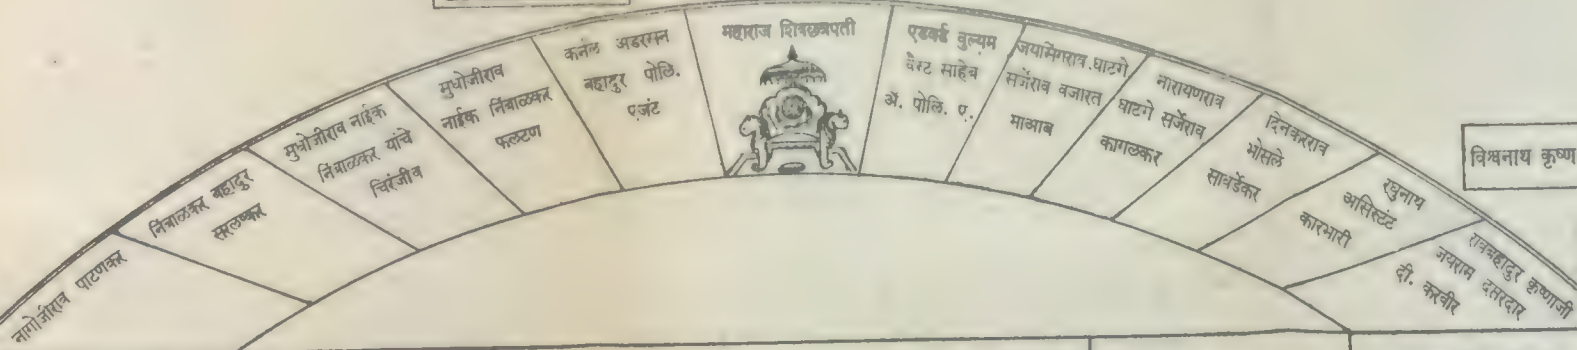 नागोजीराव पाटणकर
निंबाळकर बहादुर
सरलष्कर
मुधोजीराव नाईक
निंबाळकर यांचे
चिरंजीव
मुधोजीराव
नाईक निंबाळकर
फलटण
कर्नल अडरसन
बहादुर पोलि.
एजंट
महाराज शिवछत्रपती
एडवर्ड वुल्यम
वेस्ट साहेब
ॲ. पोलि. ए.
जयसिंगराव घाटगे
सर्जेराव वजारत
माआब
नारायणराव
घाटगे सर्जेराव
कागलकर
दिनकरराव
भोसले
सावर्डेकर
रघुनाथ
असिस्टंट
कारभारी
रावबहादुर कृष्णाजी
जयराम दसरदार
दी. करवीर
विश्वनाथ कृष्ण